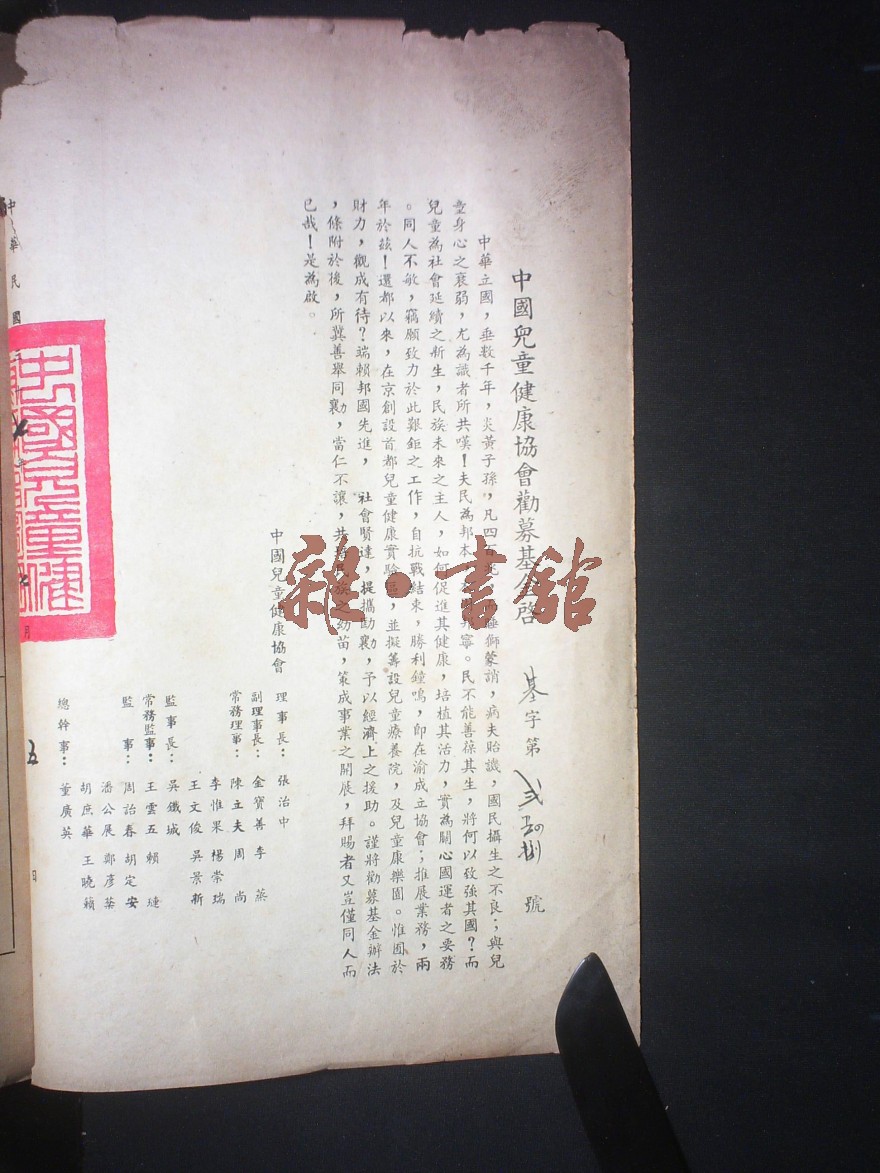 中國兒童健康協會勸募基金啓 基字第 號
中華立國，垂數千年，炎黃子孫，凡四百兆 睡獅蒙誚，病夫貽譏，國民攝生之不良；與兒
童身心之衰弱，尤為識者所共嘆！夫民為邦本， 寧。民不能善葆其生，將何以致強其國？而
兒童為社會延續之新生，民族未來之主人，如何促進其健康，培植其活力，實為關心國運者之要務
。同人不敏，竊願致力於此艱鉅之工作，自抗戰結束，勝利鐘鳴，即在渝成立協會；推展業務，兩
年於茲！還都以來，在京創設首都兒童健康實驗區，並擬籌設兒童療養院，及兒童康樂園。惟囿於
財力，觀成有待？端賴邦國先進，社會賢達，提攜勖襄，予以經濟上之援助。謹將勸募基金辦法
，條附於後，所冀善舉同襄，當仁不讓，共 民族之幼苗，策成事業之開展，拜賜者又豈僅同人而
已哉！是為啟。
中國兒童健康協會 理事長：張治中
副理事長：金寶善 李 蒸
常務理事：陳立夫 周 尚
李惟果 楊崇瑞
王文俊 吳景新
監事長：吳鐵城
常務監事：王雲五 賴 璉
監事：周詒春 胡定安
潘公展 鄭彥棻
胡庶華 王曉籟
總幹事：董廣英
中華民國 月 五 日
中國兒童健
雜·書館